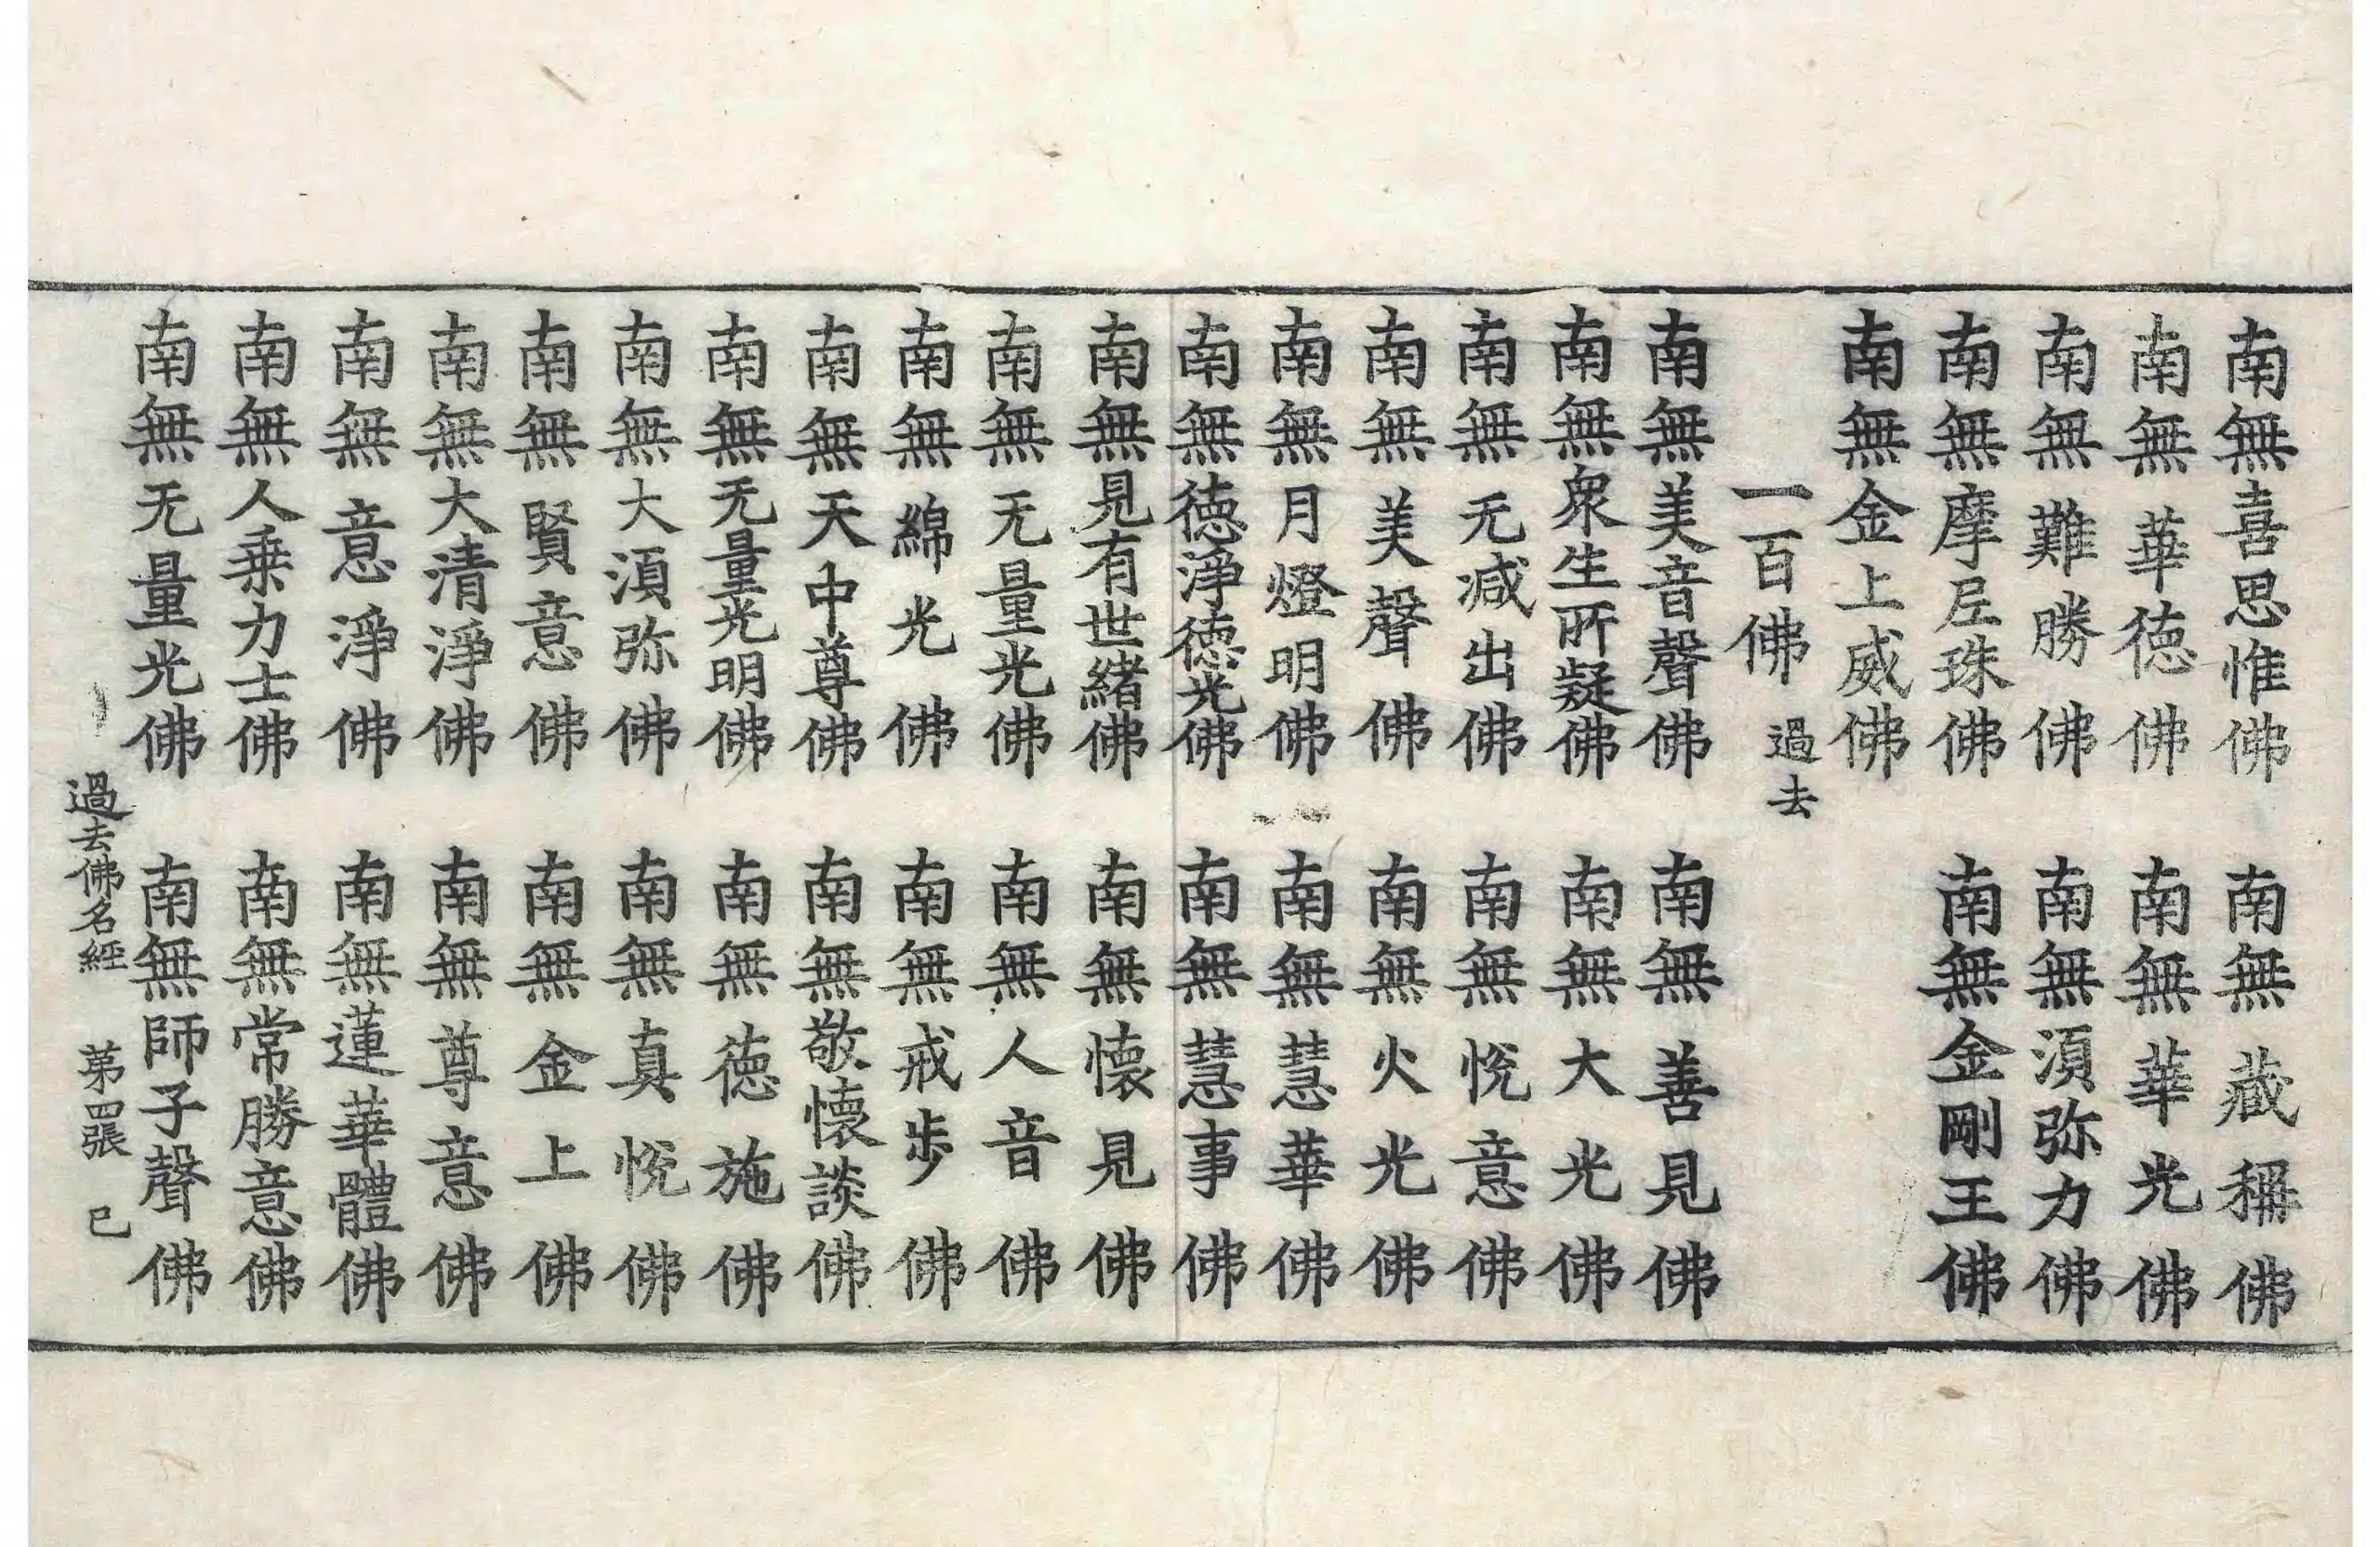 南無喜思惟佛　南無藏稱佛
南無華德佛　南無華光佛
南無難勝佛　南無湏弥力佛
南無摩尼珠佛　南無金剛王佛
南無金上威佛
一百佛　過去
南無美音聲佛　南無善見佛
南無衆生所疑佛　南無大光佛
南無无減出佛　南無悅意佛
南無美聲佛　南無火光佛
南無月燈明佛　南無慧華佛
南無德淨德光佛　南無慧事佛
南無見有世緒佛　南無懷見佛
南無无量光佛　南無人音佛
南無綿光佛　南無戒步佛
南無天中尊佛　南無敬懷談佛
南無无量光明佛　南無德施佛
南無大湏弥佛　南無真悅佛
南無賢意佛　南無金上佛
南無大清淨佛　南無尊意佛
南無意淨佛　南無蓮華體佛
南無人乗力士佛　南無常勝意佛
南無无量光佛　南無師子聲佛
過去佛名經　苐四張　巳